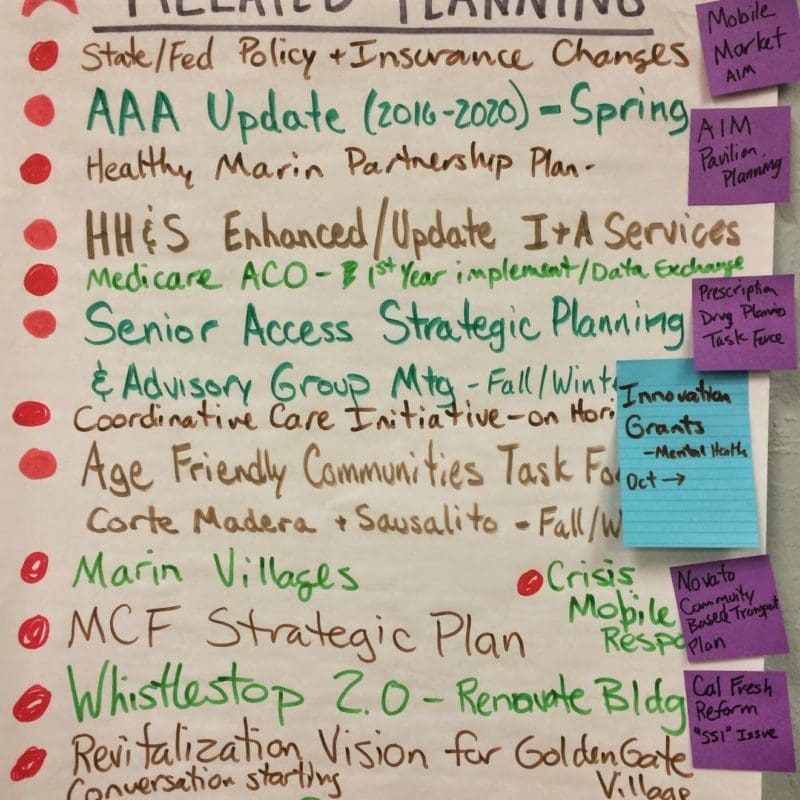 RELATED PLANNING
State/Fed Policy + Insurance Changes
AAA Update (2016-2020) - Spring
Healthy Marin Partnership Plan.
HH&S Enhanced/Update I+A Services
Medicare ACO - 1st Year implement/Data Exchange
Senior Access Strategic Planning
& Advisory Group Mtg - Fall/Wint
Coordinative Care Initiative - on Hori
Age Friendly Communities Task Fo
Corte Madera + Sausalito - Fall/W
Marin Villages
Crisis
Mobile
Respo
MCF Strategic Plan
Whistlestop 2.0 - Renovate Bldg
Revitalization Vision for Golden Gate
Village
Conversation starting
Mobile
Market
AIM
AIM
Pavilion
Planning
Prescription
Drug Planning
Task Force
Innovation
Grants
-Mental Health
Oct →
Novato
Community
Based Transport
Plan
Cal Fresh
Reform
"SSI" Issue